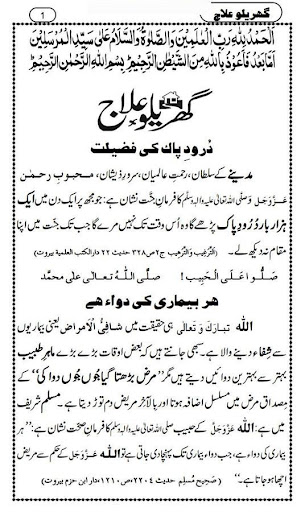 گھریلو علاج
1
اَلْحَمْدُ لِلّٰہِ رَبِّ الْعٰلَمِیْنَ وَالصَّلٰوۃُ وَالسَّلَامُ عَلٰی سَیِّدِ الْمُرْسَلِیْنَ
اَمَّا بَعْدُ فَاَعُوْذُ بِاللّٰہِ مِنَ الشَّیْطٰنِ الرَّجِیْمِ بِسْمِ اللّٰہِ الرَّحْمٰنِ الرَّحِیْمِ
گھریلو علاج
دُرودِ پاک کی فضیلت
مدینے کے سلطان، رحمتِ عالمیان، سرورِ ذیشان، محبوبِ رحمٰن
عَزَّوَجَلَّ وَصلَّی اللہ تعالٰی علیہ واٰلہٖ وسلَّم کا فرمانِ جنّت نشان ہے: جو مجھ پر ایک دن میں ایک
ہزار بار دُرُودِ پاک پڑھے گا وہ اُس وقت تک نہیں مرے گا جب تک جنّت میں اپنا
مقام نہ دیکھ لے۔ (اَلتَّرْغِیْب وَالتَّرْهِیْب ج۲ ص۳۲۸ حدیث ۲۲ دارالکتب العلمیة بیروت)
صَلُّوا عَلَی الْحَبِیْب! صلَّی اللّٰہُ تعالٰی علٰی محمَّد
ہر بیماری کی دواء ہے
اللّٰہ تبارَکَ وَ تَعَالٰی ہی حقیقت میں شافِیُ الْاَمراض یعنی بیماریوں
سے شِفاء دینے والا ہے۔ یہی جانتے ہیں کہ بعض اوقات بڑے بڑے ماہِر طبیب
بہتر سے بہترین دوائیں دیتے ہیں مگر ”مرض بڑھتا گیا جوں جوں دوا کی“ کے
مِصداق مرض میں مسلسل اضافہ ہوتا اور بالآخِر مریض دم توڑ دیتا ہے۔ مسلم شریف
میں ہے: اللّٰہ عَزَّوَجَلَّ کے حبیب صلَّی اللہ تعالٰی علیہ واٰلہٖ وسلَّم کا فرمانِ صحّت نشان ہے: ”ہر
بیماری کی دواء ہے، جب دواء بیماری تک پہنچا دی جاتی ہے تو اللّٰہ عَزَّوَجَلَّ کے حکم سے مریض
اچّھا ہو جاتا ہے۔“ (صَحِیح مُسلِم حدیث ۲۲۰۴ ص۱۲۱۰ دار ابن حزم بیروت)